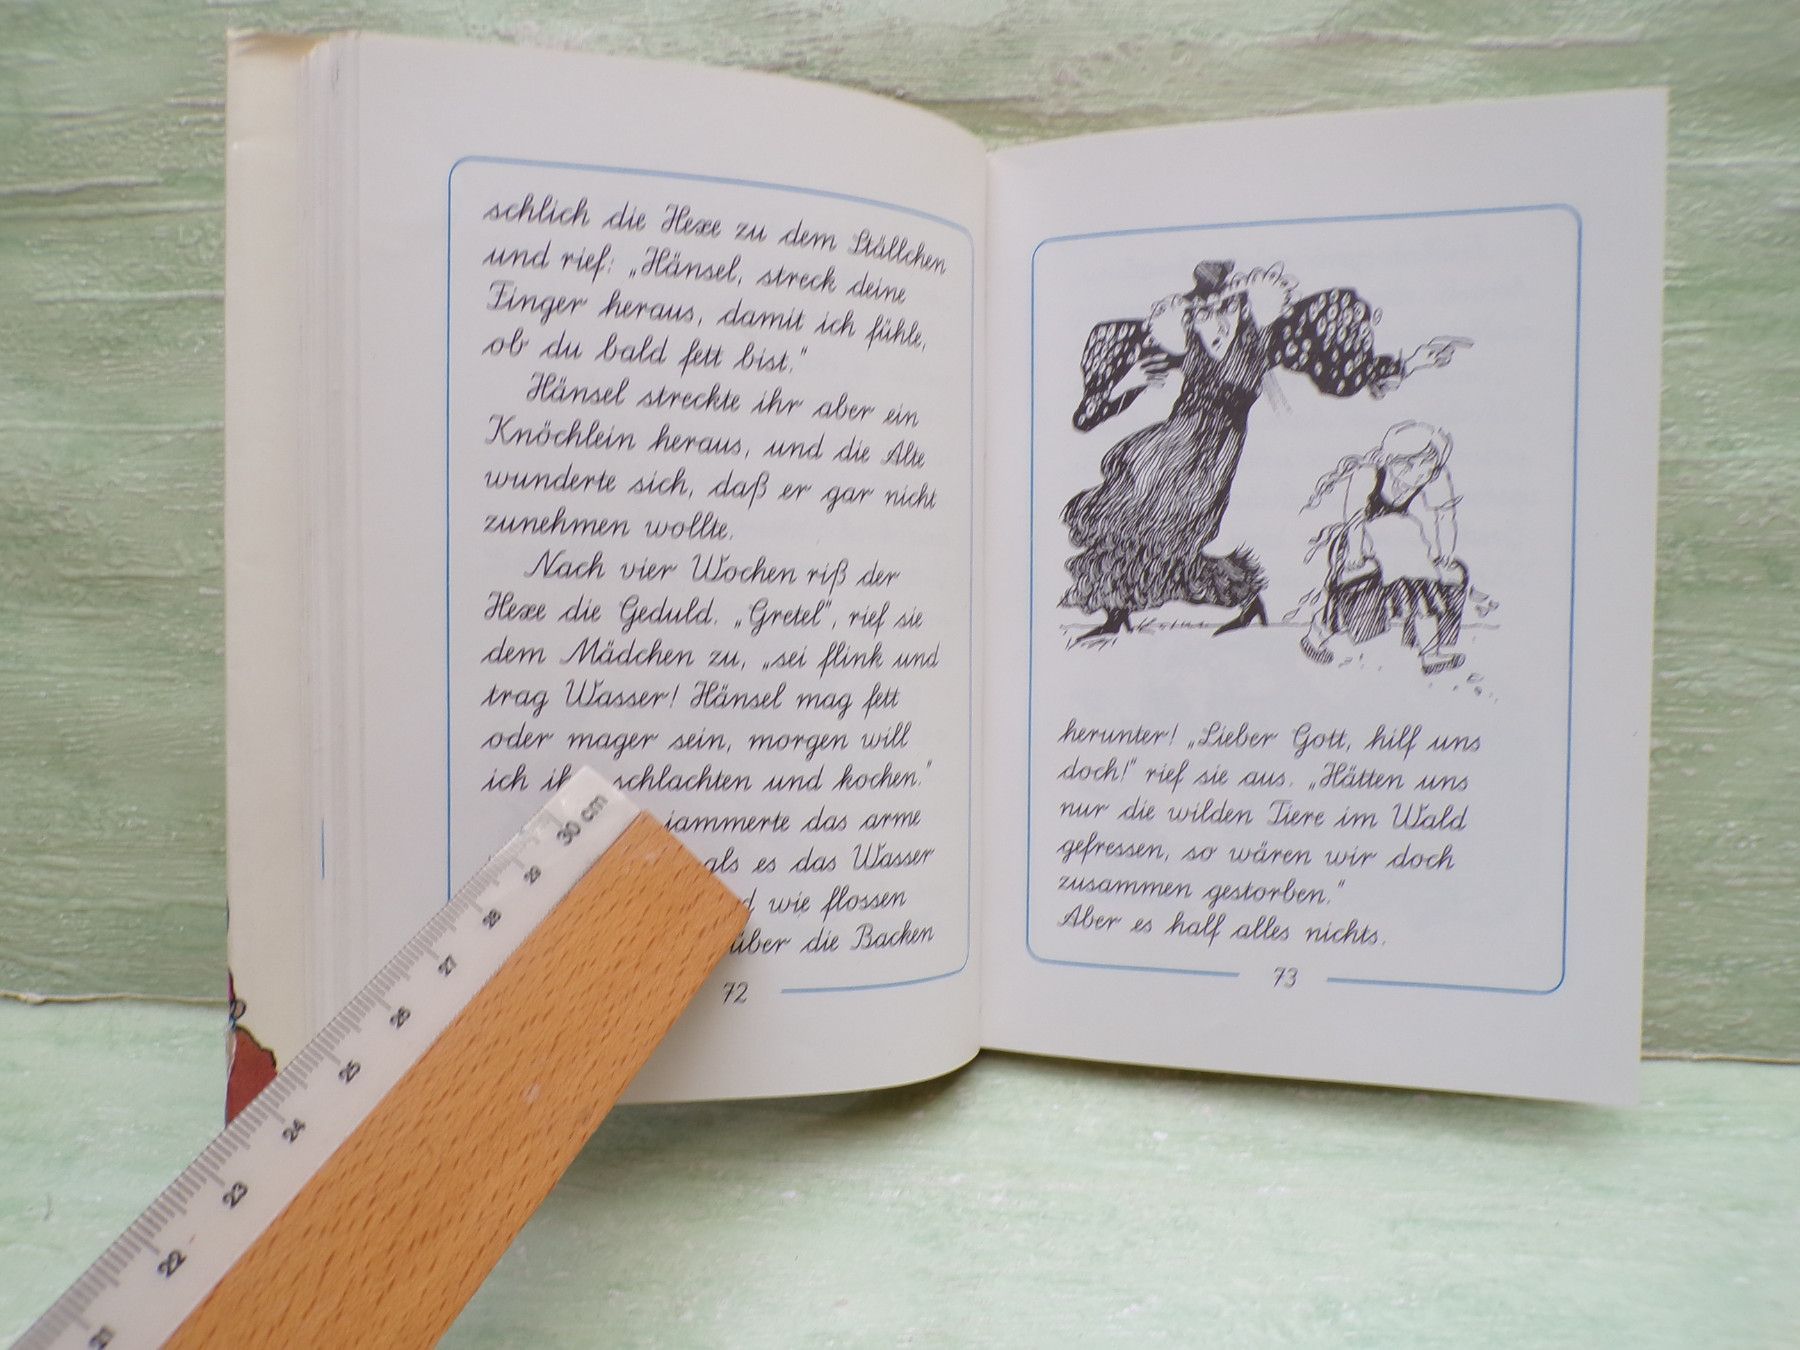 schlich die Hexe zu dem Ställchen
und rief: „Hänsel, streck deine
Finger heraus, damit ich fühle,
ob du bald fett bist."
Hänsel streckte ihr aber ein
Knöchlein heraus, und die Alte
wunderte sich, daß er gar nicht
zunehmen wollte.
Nach vier Wochen riß der
Hexe die Geduld. „Gretel", rief sie
dem Mädchen zu, „sei flink und
trag Wasser! Hänsel mag fett
oder mager sein, morgen will
ich schlachten und kochen."
jammerte das arme
als es das Wasser
wie flossen
über die Backen
72
herunter! „Lieber Gott, hilf uns
doch!" rief sie aus. „Hätten uns
nur die wilden Tiere im Wald
gefressen, so wären wir doch
zusammen gestorben."
Aber es half alles nichts.
73
30 cm
29
28
27
26
25
24
23
22
21